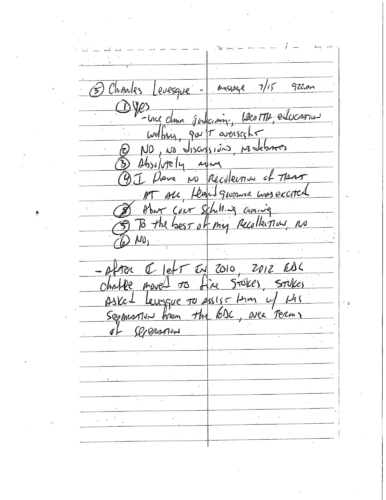 ⑤ Charles Levesque - message 7/15 922am
① Yes
- vice chair judiciary, HEALTH, EDUCATION
welfare, gov'T oversight
② NO, NO discussions, NO debates
③ Absolutely none
④ I Have NO Recollection of THAT
AT ALL, Heard governor was excited
About Curt Schilling coming
⑤ To the best of my Recollection, NO
⑥ NO,
- AFTER I left IN 2010, 2012 EDC
moved to fire Stokes, Stokes
ASKED Levesque TO ASSIST Him w/ His
Separation from the EDC, over Terms
of Separation